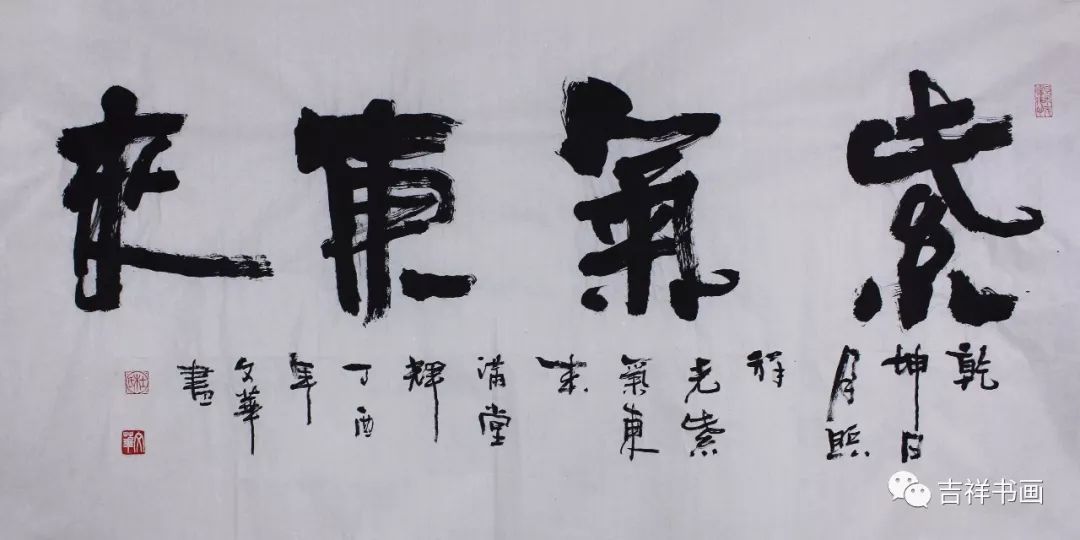 紫氣東來
乾
坤日
月照
祥
光紫
氣東
来
滿堂
輝
丁酉
年
文華
書
文華
吉祥书画